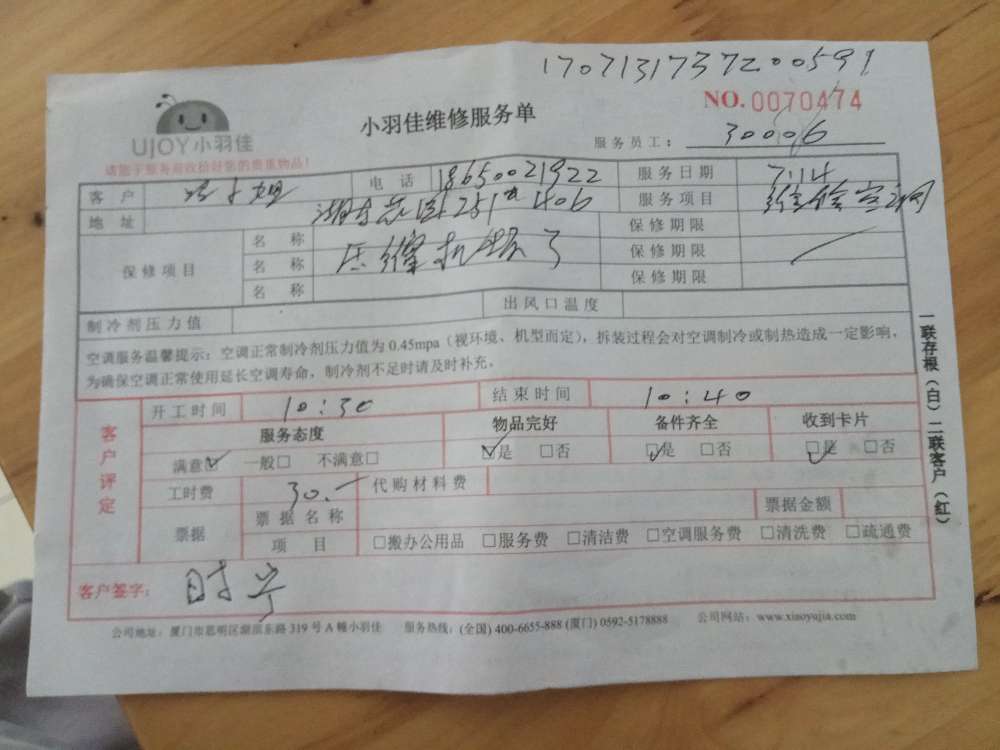 1707131737200591
NO. 0070474
UJOY小羽佳
小羽佳维修服务单
服务员工: 30006
请您于服务前收拾好您的贵重物品!
客户 小姐 电话 18650021922 服务日期 7.14
地址 湖东花园251 406 服务项目 维修空调
保修项目 名称 压缩机坏了 保修期限
名称 保修期限
名称 保修期限
制冷剂压力值 出风口温度
空调服务温馨提示:空调正常制冷剂压力值为0.45mpa(视环境、机型而定),拆装过程会对空调制冷或制热造成一定影响,
为确保空调正常使用延长空调寿命,制冷剂不足时请及时补充。
客户评定
开工时间 10:30 结束时间 10:40
服务态度 物品完好 备件齐全 收到卡片
满意☑ 一般□ 不满意□ ☑是 □否 ☑是 □否 ☑是 □否
工时费 30.- 代购材料费
票据 票据名称 票据金额
项目 □搬办公用品 □服务费 □清洁费 □空调服务费 □清洗费 □疏通费
客户签字:
公司地址:厦门市思明区湖滨东路319号A幢小羽佳 服务热线:(全国)400-6655-888(厦门)0592-5178888 公司网站:www.xiaoyujia.com
一联存根(白)二联客户(红)